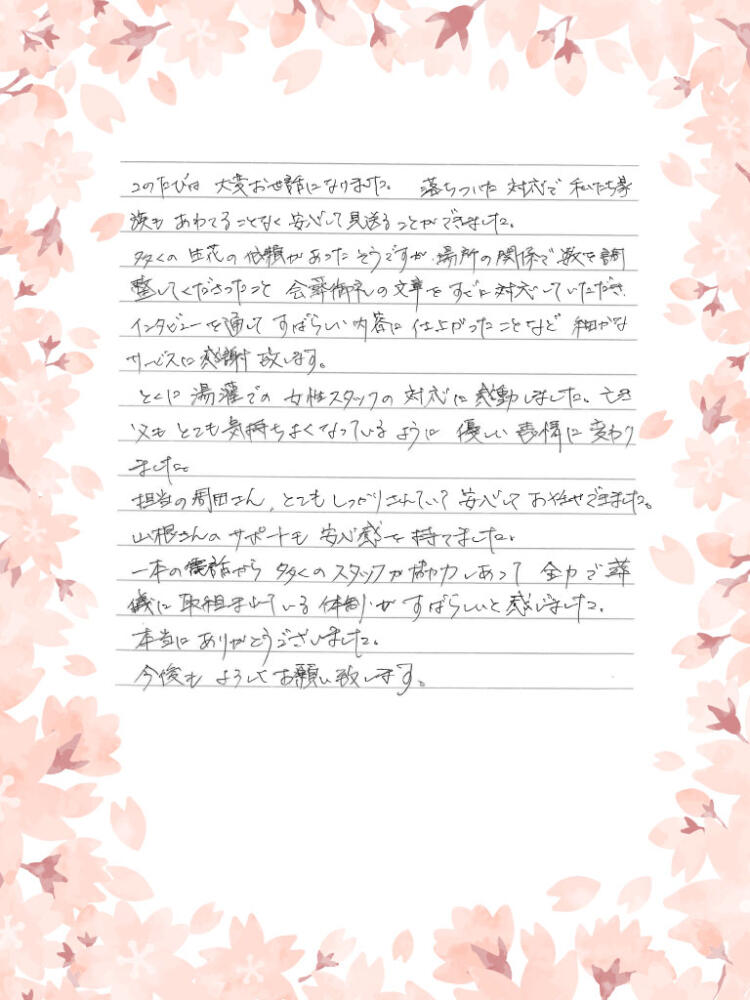 このたびは 大変お世話になりました。 落ちついた 対応で 私たち家
族も あわてることなく 安心して見送ることができました。
多くの 生花の 依頼があったそうですが、場所の関係で 数を調
整してくださったこと 会葬御礼の文章をすぐに対応していただき、
インタビューを通して すばらしい内容に 仕上がったことなど 細かな
サービスに感謝致します。
とくに 湯灌での 女性スタッフの 対応に感動しました。亡き
父も とても気持ちよくなっているように 優しい表情に変わり
ました。
担当の 周田さん、とてもしっかりされていて 安心して お任せできました。
山根さんの サポートも 安心感を 持てました。
一本の電話から 多くのスタッフが協力しあって 全力で 葬
儀に 取組まれている体制が すばらしいと感じました。
本当に ありがとうございました。
今後も よろしくお願い致します。